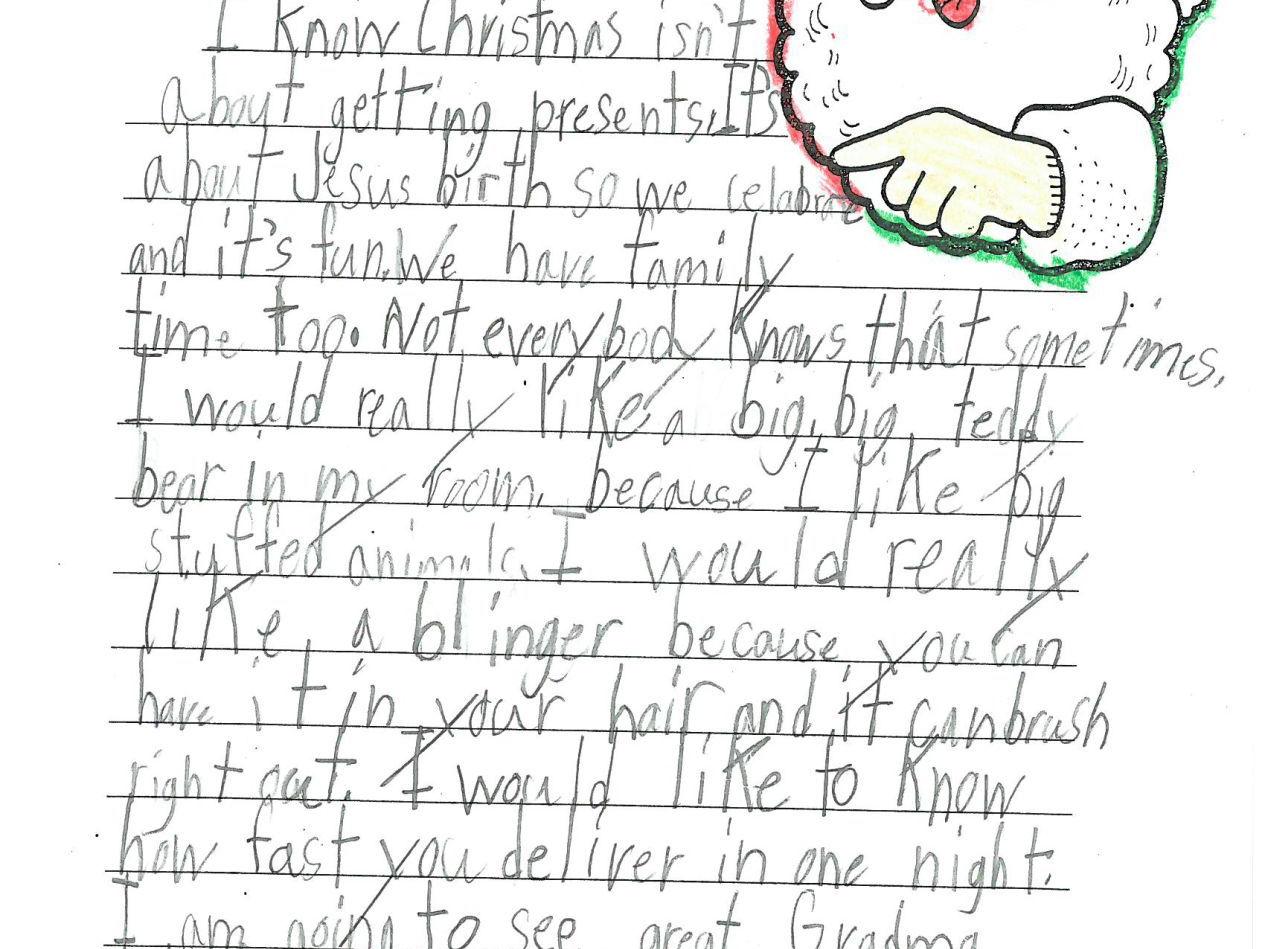 I know Christmas isn't
about getting presents. It's
about Jesus birth so we celabrate
and it's fun. We have family
time too. Not everybody knows that sometimes,
I would really like a big, big, teddy
bear in my room, because I like big
stuffed animals. I would really
like, a blinger because, you can
have it in your hair, and it can brush
right out. I would like to know
how fast you deliver in one night.
I am going to see great Gradma